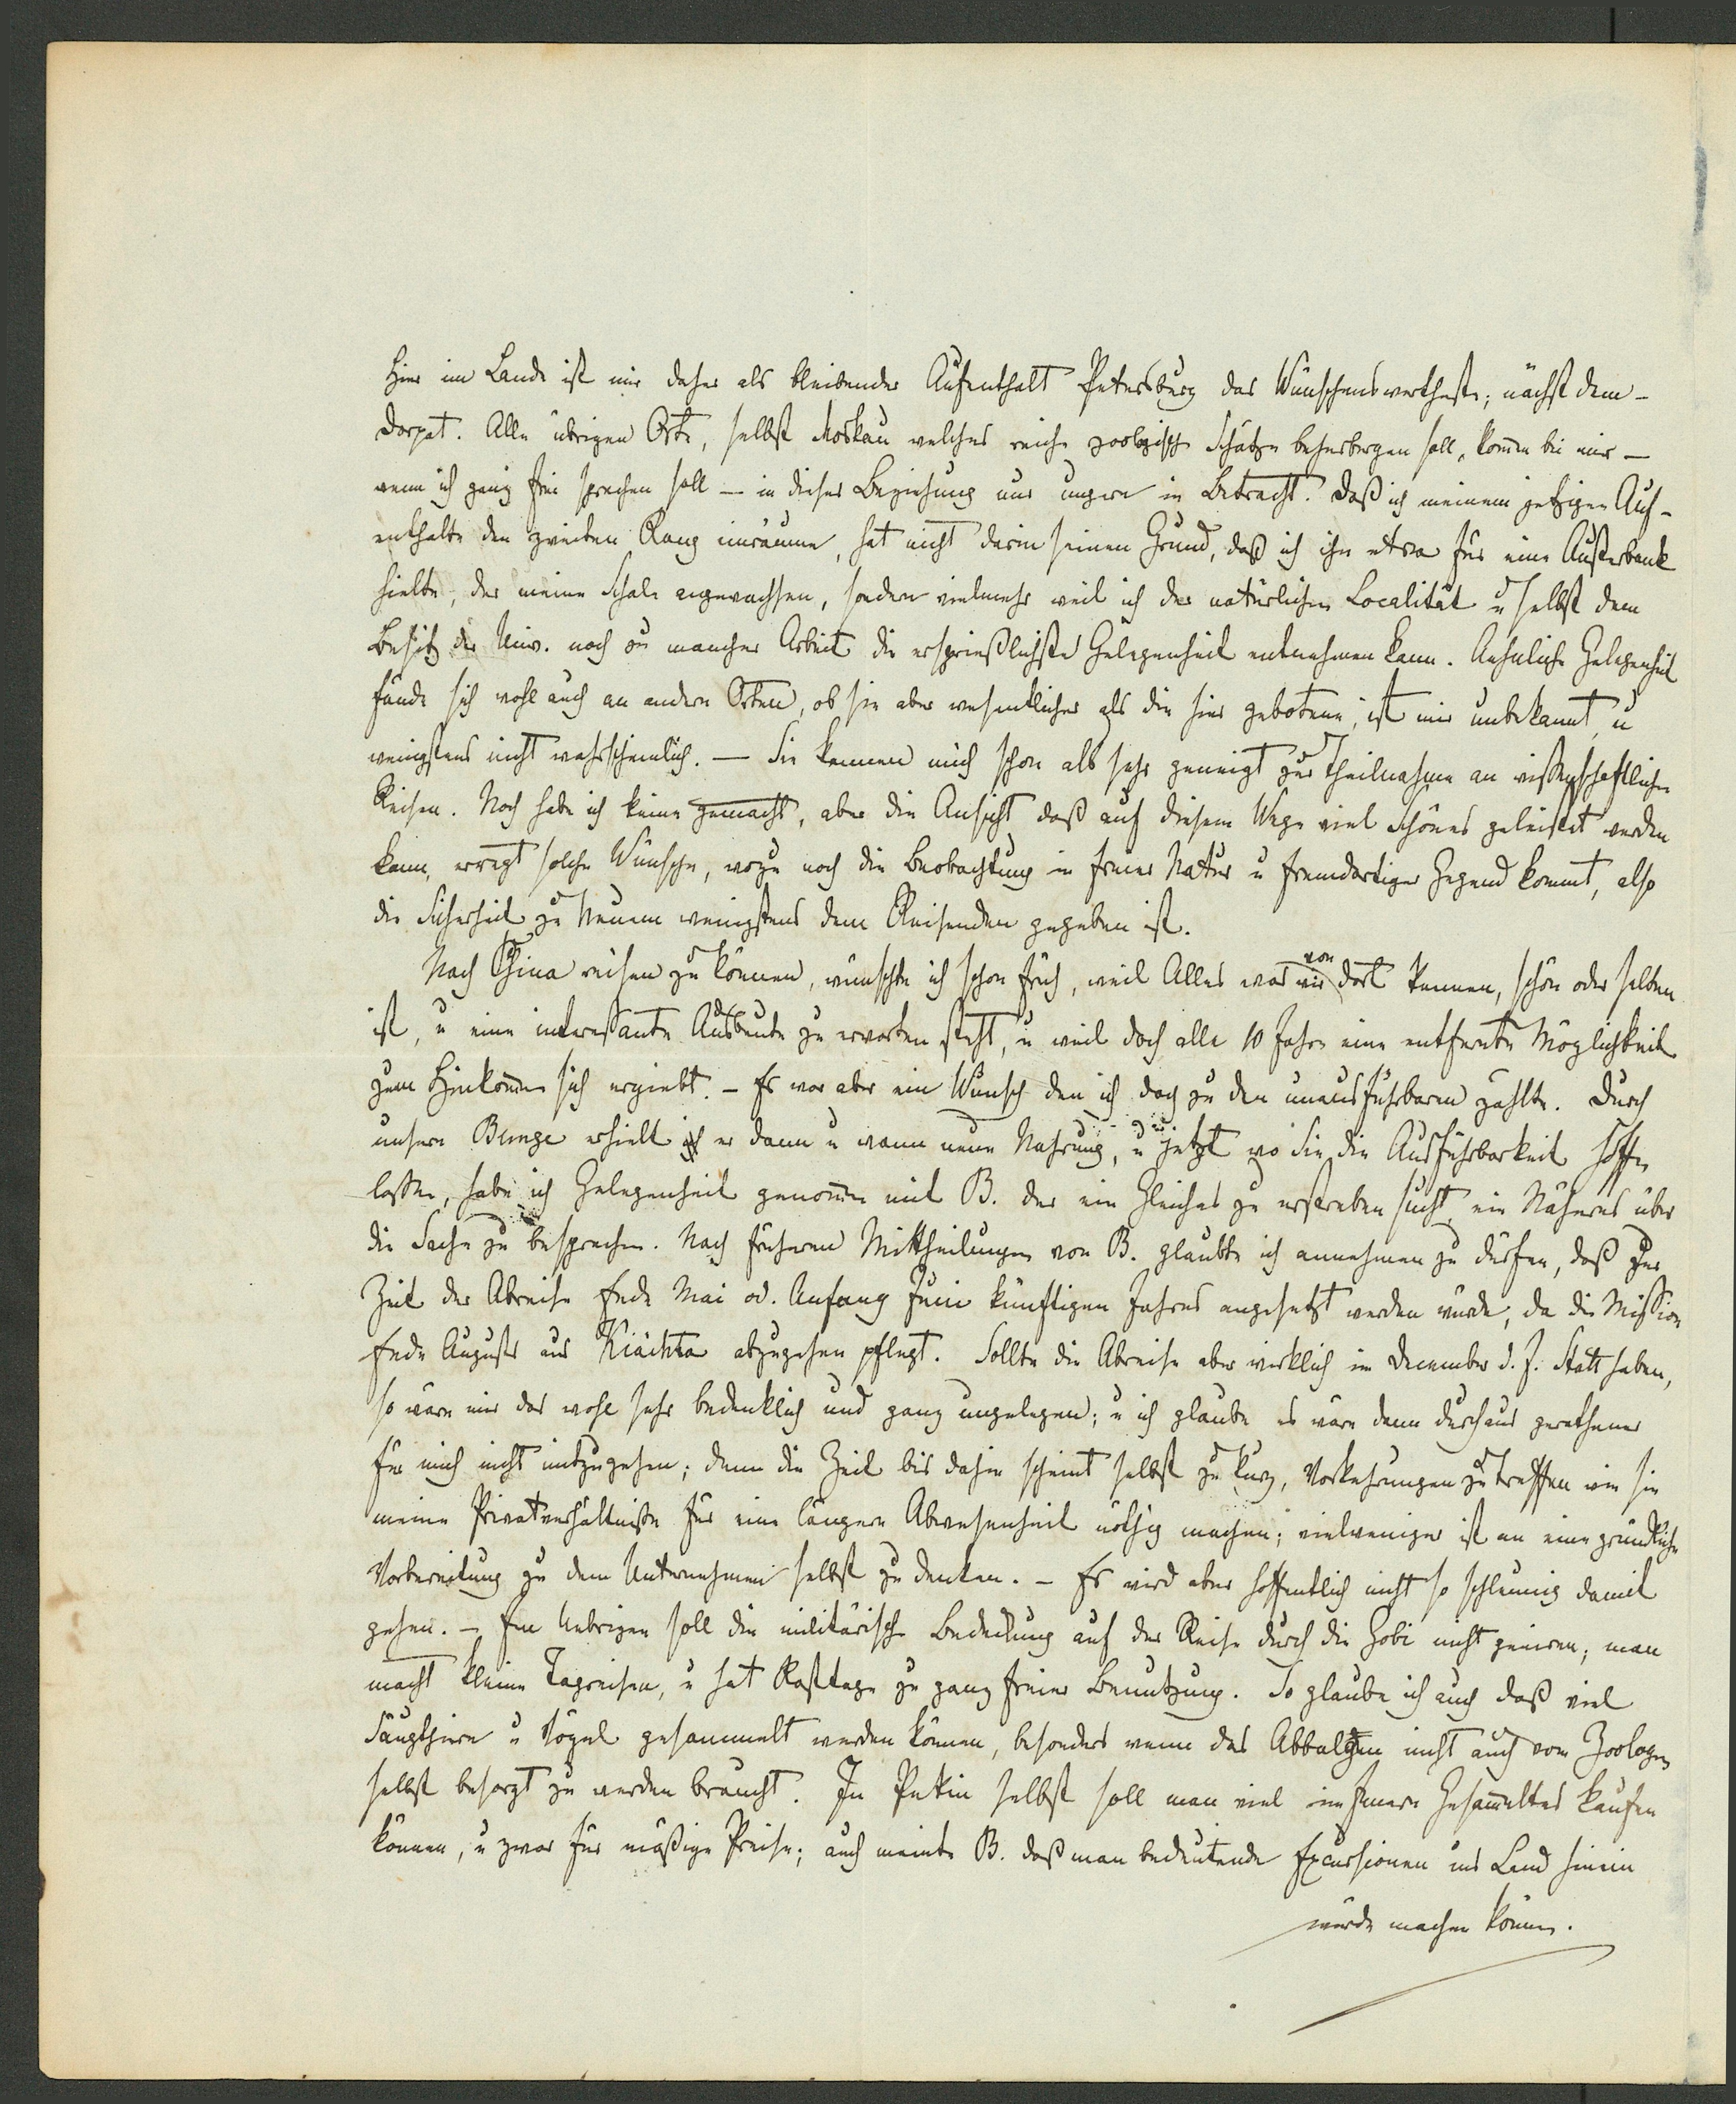 Hier im Lande ist mir daher als bleibender Aufenthalt Petersburg das Wünschenswertheste; nächstdem –
Dorpat. Alle übrigen Orte, selbst Moskau welches reiche zoologische Schätze beherbergen soll, kom̄en bei mir –
wenn ich ganz frei sprechen soll – in dieser Beziehung nur ungern in Betracht. Daß ich meinem jetzigen Auf-
enthalte den zweiten Rang einräume, hat nicht darin seinen Grund, daß ich ihn etwa für eine Austerbank
hielte, der meine Schale angewachsen, sondern vielmehr weil ich der natürlichen Localität u selbst dem
Besitz der Univ. noch zu mancher Arbeit die ersprießlichste Gelegenheit entnehmen kann. Aehnliche Gelegenheit
fände sich wohl auch an andern Orten, ob sie aber wesentlicher als die hier gebotene, ist mir unbekannt, u
wenigstens nicht wahrscheinlich. – Sie kennen mich schon als sehr geneigt zur Theilnahme an wissenschaftlichen
Reisen. Noch habe ich keine gemacht, aber die Ansicht daß auf diesem Wege viel Schönes geleistet werden
kann, erregt solche Wünsche, wozu noch die Beobachtung in freier Natur u fremdartiger Gegend kommt, also
die Sicherheit zu Neuem wenigstens dem Reisenden gegeben ist.
Nach China reisen zu können, wünschte ich schon früh, weil Alles was wir von dort kennen, schön oder selten
ist, u eine interessante Ausbeute zu erwarten steht, u weil doch alle 10 Jahre eine entfernte Möglichkeit
zum Hinkom̄en sich ergiebt. – Es war aber ein Wunsch den ich doch zu den unausführbaren zählte. Durch
unsern Bunge erhielt er dann u wann neue Nahrung, u jetzt wo Sie die Ausführbarkeit hoffen
lassen, habe ich Gelegenheit genom̄en mit B. der ein Gleiches zu erstreben sucht, ein Näheres über
die Sache zu besprechen. Nach früheren Mittheilungen von B. glaubte ich annehmen zu dürfen, daß zur
Zeit der Abreise Ende Mai od. Anfang Juni künftigen Jahres angesetzt werden würde, da die Mission
Ende August aus Kiächta abzugehen pflegt. Sollte die Abreise aber wirklich im December d. J. Statt haben,
so wäre mir das wohl sehr bedenklich und ganz ungelegen; u ich glaube es wäre dann durchaus gerathener
für mich nicht mitzugehen; denn die Zeit bis dahin scheint selbst zu kurz, Vorkehrungen zu treffen wie sie
meine Privatverhältnisse für eine längere Abwesenheit nöthig machen; vielweniger ist an eine gründliche
Vorbereitung zu dem Unternehmen selbst zu denken. – Es wird aber hoffentlich nicht so schleunig damit
gehen. – Im Uebrigen soll die militärische Bedeckung auf der Reise durch die Gobi nicht geniren; man
macht kleine Tagreisen, u hat Rasttage zu ganz freier Benutzung. So glaube ich auch daß viel
Säugthiere u Vögel gesammelt werden können, besonders wenn das Abbalgen nicht auch vom Zoologen
selbst besorgt zu werden braucht. In Pekin selbst soll man viel Gesam̄eltes kaufen
können, u zwar für mäßige Preise; auch meinte B. daß man bedeutende Excursionen ins Land hinein
würde machen können.